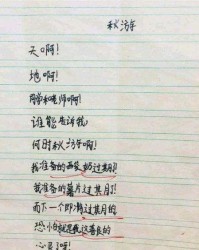 秋游
天啊!
地啊!
同学和老师啊!
谁能告诉我
何时秋游啊!
我准备的酸奶过期了!
我准备的薯片过期了!
而下一个即将过期的
恐怕就是我这善良的
心灵啊